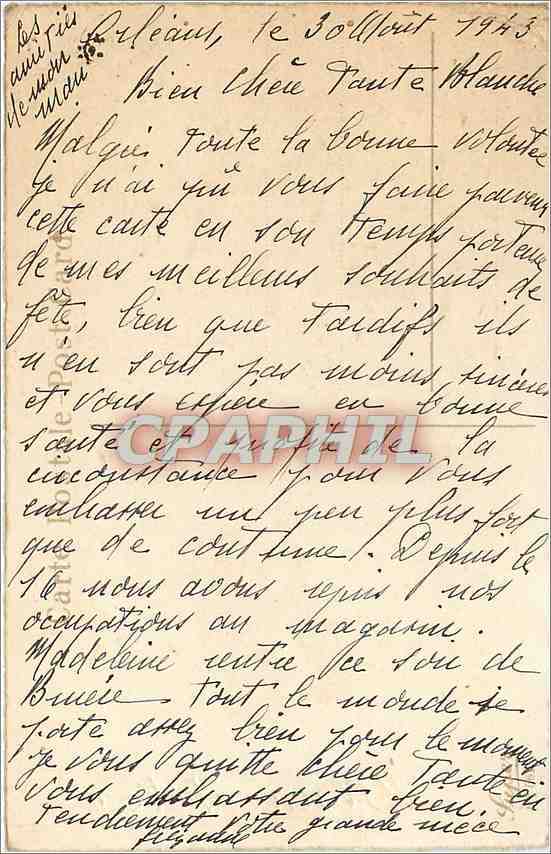 Les
amitiés
de mon
mari
Orléans, le 30 Août 1943
Bien Chère Tante Blanche
Malgré toute la bonne volontée
je n'ai pû vous faire parvenir
cette carte en son temps porteuse
de mes meilleurs souhaits de
fête, bien que tardifs ils
n'en sont pas moins sincères
et vous espère en bonne
santé et profite de la
circonstance pour vous
embrasser un peu plus fort
que de coutume. Depuis le
16 nous avons repris nos
occupations au magasin.
Madeleine rentre ce soir de
Tout le monde se
porte assez bien pour le moment
je vous quitte chère Tante en
vous embrassant bien
Tendrement Votre grande nièce
Suzanne
Carte Postale - Post Card
CPAPHIL